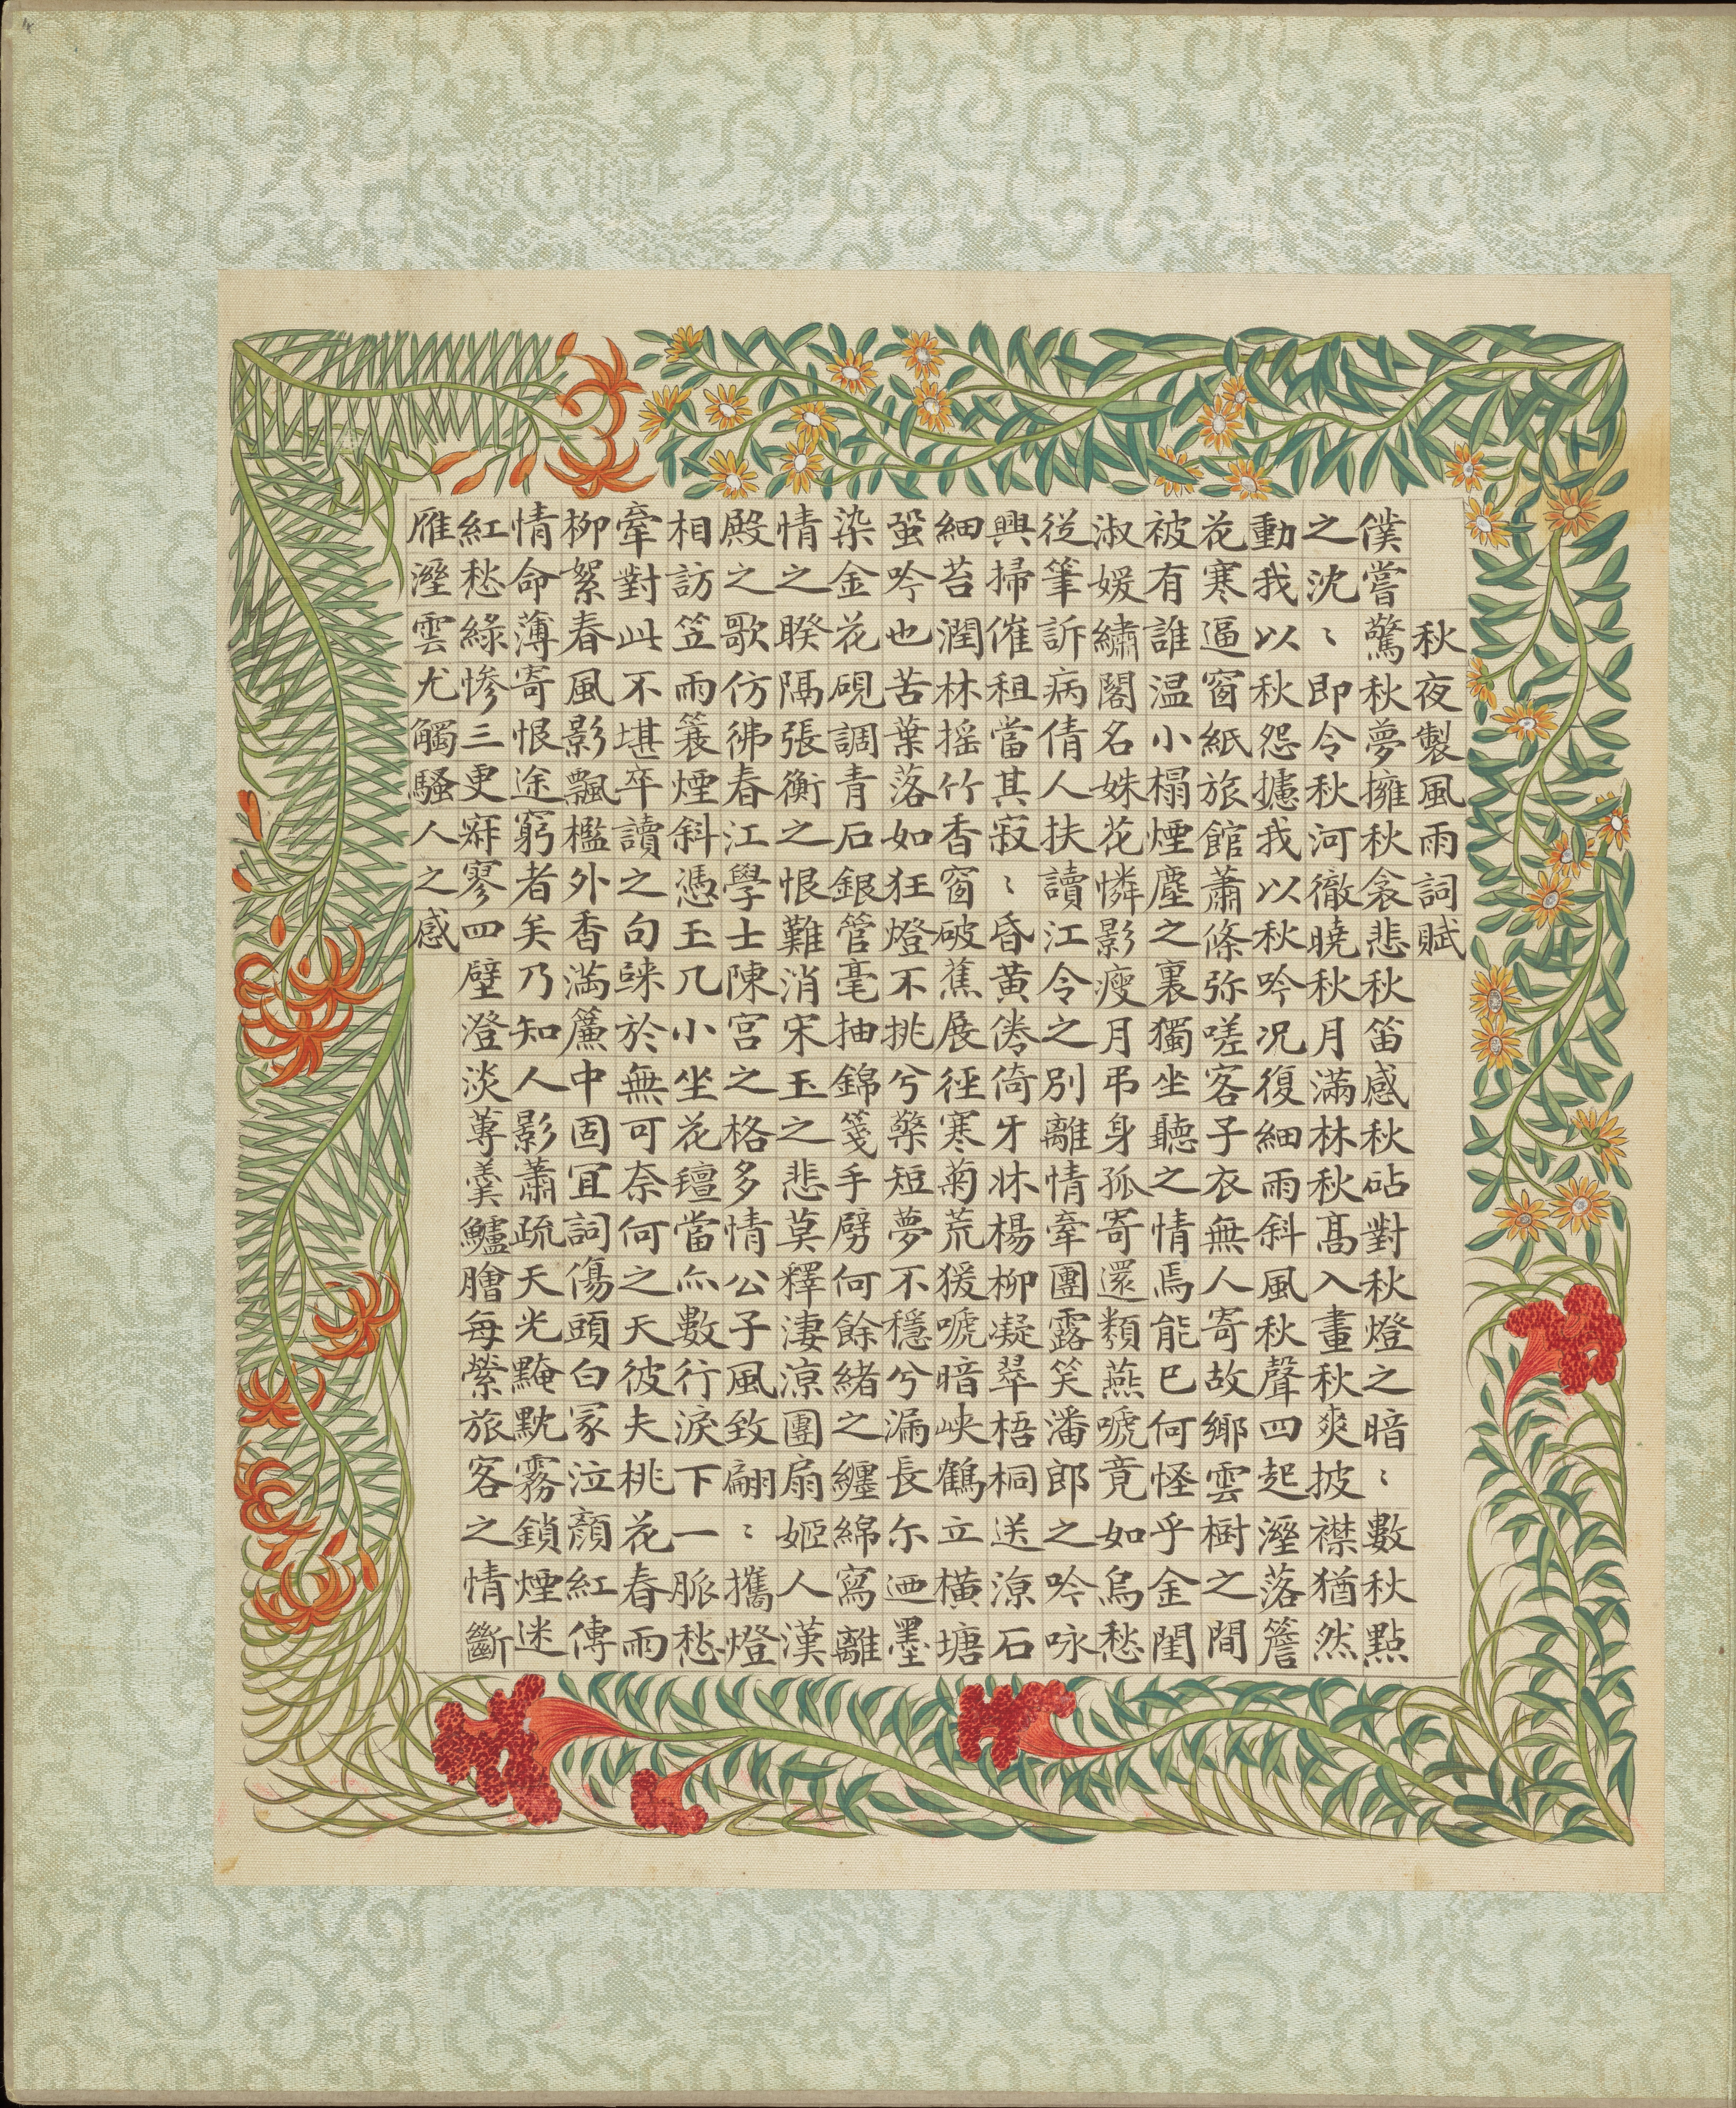 秋夜製風雨詞賦
僕嘗驚秋夢擁秋衾悲秋笛感秋砧對秋燈之暗〻數秋點
之沈〻即令秋河徹曉秋月滿林秋高入畫秋爽披襟猶然
動我以秋怨攄我以秋吟况復細雨斜風秋聲四起溼落簷
花寒逼窗紙旅館蕭條弥嗟客子衣無人寄故鄉雲樹之間
被有誰温小榻煙塵之裏獨坐聽之情焉能已何怪乎金閨
淑媛繡閣名姝花憐影瘦月弔身孤寄還類燕嗁竟如烏愁
從筆訴病倩人扶讀江令之別離情牽團露笑潘郎之吟咏
興掃催租當其寂〻昏黃倦倚牙牀楊柳凝翠梧桐送涼石
細苔潤林摇竹香窗破蕉展徑寒菊荒猨嗁暗峽鶴立橫塘
蛩吟也苦葉落如狂燈不挑兮檠短夢不穩兮漏長尓迺墨
染金花硯調青石銀管毫抽錦箋手劈何餘緒之纏綿寫離
情之睽隔張衡之恨難消宋玉之悲莫釋淒涼團扇姬人漢
殿之歌仿彿春江學士陳宮之格多情公子風致翩〻攜燈
相訪笠雨蓑煙斜憑玉几小坐花氊當亦數行淚下一脈愁
牽對此不堪卒讀之句疎於無可奈何之天彼夫桃花春雨
柳絮春風影飄檻外香滿簾中固宜詞傷頭白冢泣顏紅傳
情命薄寄恨途窮者矣乃知人影蕭疏天光黤黕霧鎖煙迷
紅愁綠慘三更寂寥四壁澄淡蓴羹鱸膾每縈旅客之情斷
雁溼雲尤觸騷人之感